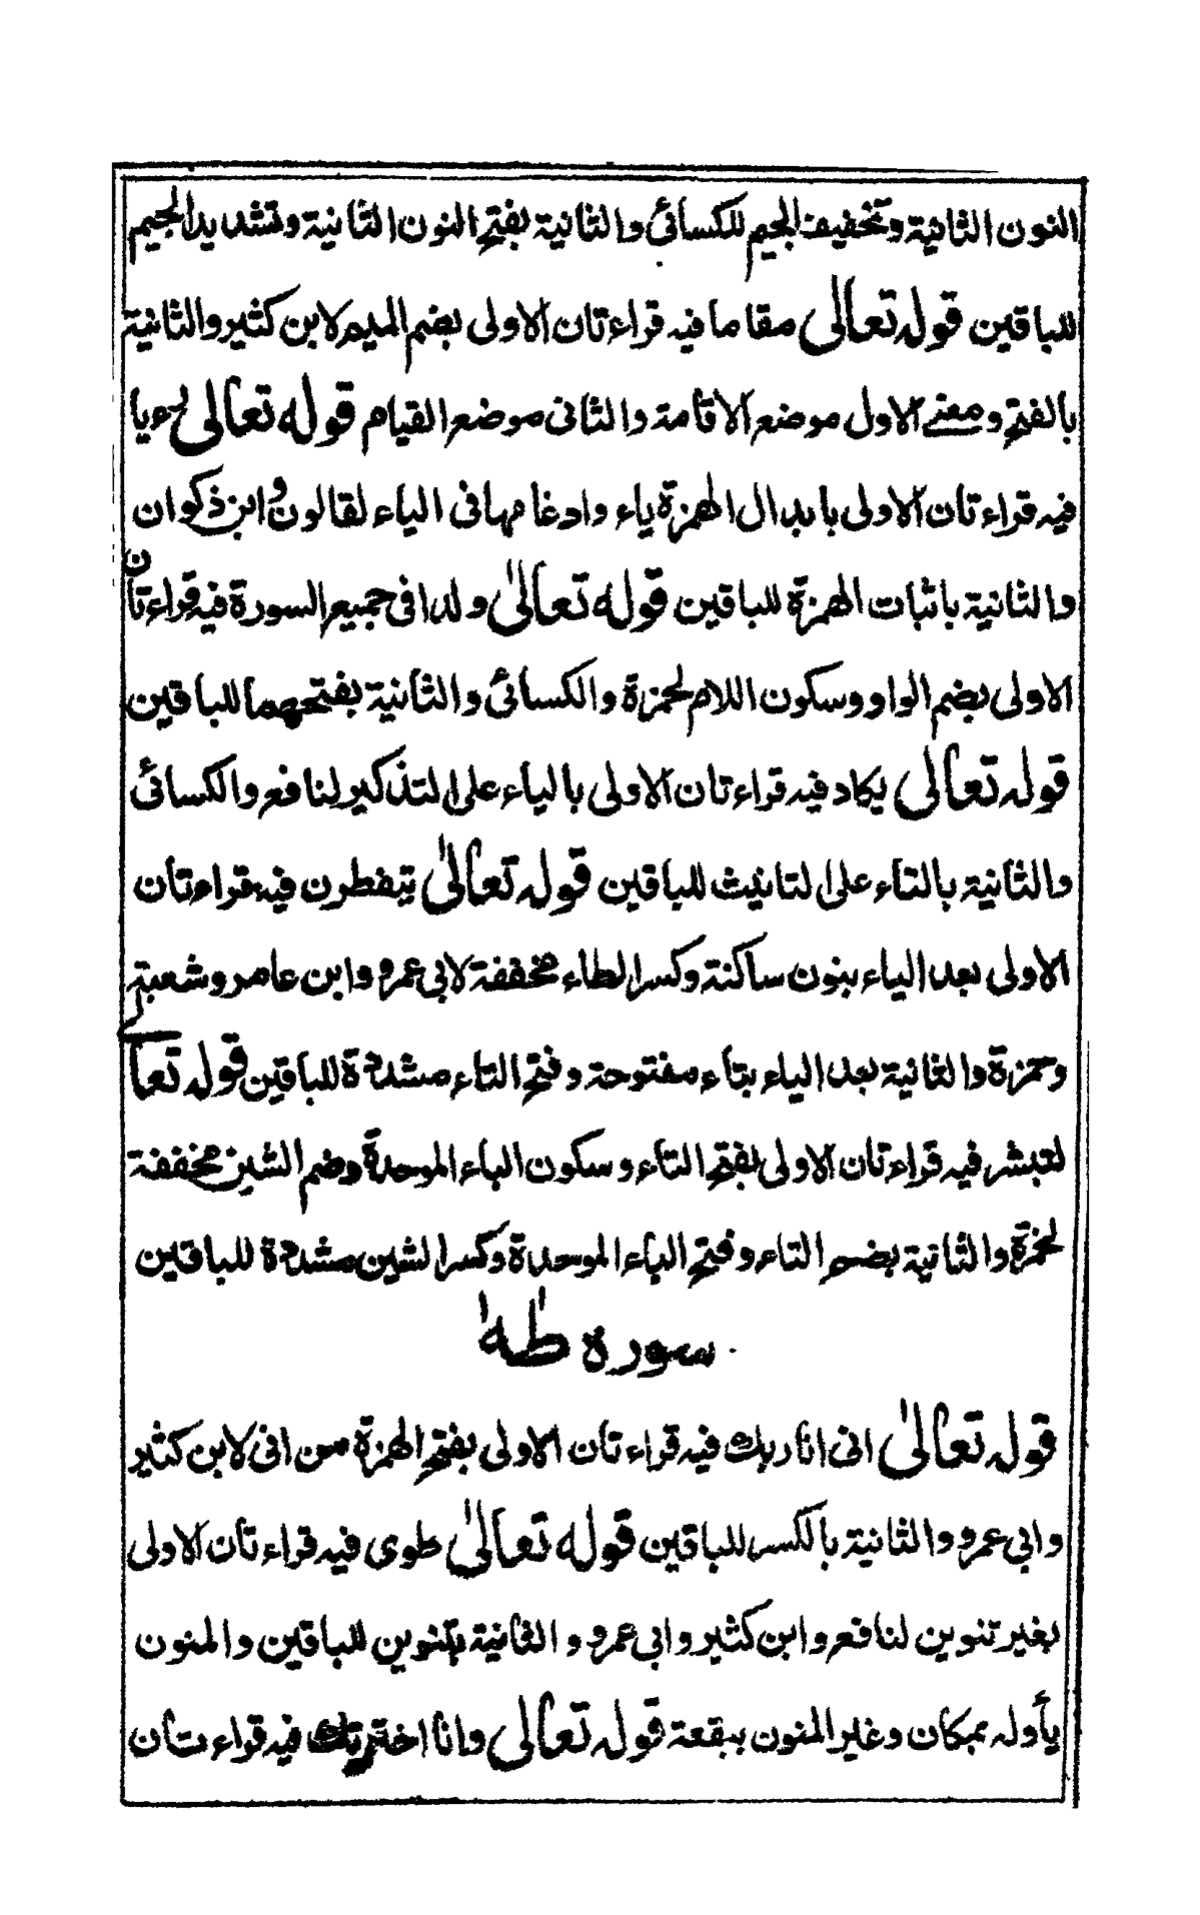 النون الثانية وتخفيف الجيم للكسائي والثانية بفتح النون الثانية وتشديد الجيم
للباقين قوله تعالى مقاما فيه قراءتان الاولى بضم الميم لابن كثير والثانية
بالفتح ومعنى الاول موضع الاقامة والثانى موضع القيام قوله تعالى رءيا
فيه قراءتان الاولى بابدال الهمزة ياء وادغامها فى الياء لقالون وابن ذكوان
والثانية باثبات الهمزة للباقين قوله تعالىٰ ولدا فى جميع السورة فيه قراءتان
الاولى بضم الواو وسكون اللام لحمزة والكسائى والثانية بفتحهما للباقين
قوله تعالى يكاد فيه قراءتان الاولى بالياء على التذكير لنافع والكسائى
والثانية بالتاء على التانيث للباقين قوله تعالىٰ يتفطرن فيه قراءتان
الاولى بعد الياء بنون ساكنة وكسر الطاء مخففة لابي عمرو وابن عامر وشعبة
وحمزة والثانية بعد الياء بتاء مفتوحة وفتح التاء مشددة للباقين قوله تعالى
لتبشر فيه قراءتان الاولى بفتح التاء وسكون الباء الموحدة وضم الشين مخففة
لحمزة والثانية بضم التاء وفتح الباء الموحدة وكسر الشين مشددة للباقين
سورة طٰهٰ
قوله تعالىٰ انى انا ربك فيه قراءتان الاولى بفتح الهمزة من انى لابن كثير
وابي عمرو والثانية بالكسر للباقين قوله تعالىٰ طوى فيه قراءتان الاولى
بغير تنوين لنافع وابن كثير وابي عمرو والثانية بتنوين للباقين والمنون
يأوله بمكان وغير المنون ببقعة قوله تعالى وانا اخترتك فيه قراءتان